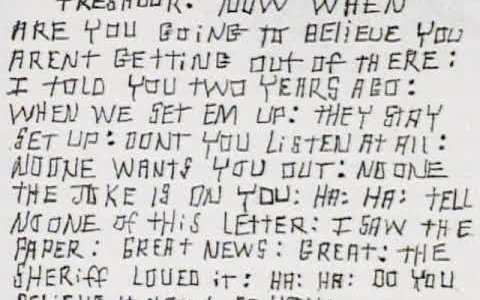 FRESHOUR: NOW WHEN
ARE YOU GOING TO BELIEVE YOU
ARENT GETTING OUT OF THERE:
I TOLD YOU TWO YEARS AGO:
WHEN WE SET EM UP: THEY STAY
SET UP: DONT YOU LISTEN AT ALL:
NOONE WANTS YOU OUT: NOONE
THE JOKE IS ON YOU: HA: HA: TELL
NOONE OF THIS LETTER: I SAW THE
PAPER: GREAT NEWS: GREAT: THE
SHERIFF LOVED IT: HA: HA: DO YOU
BELIEVE